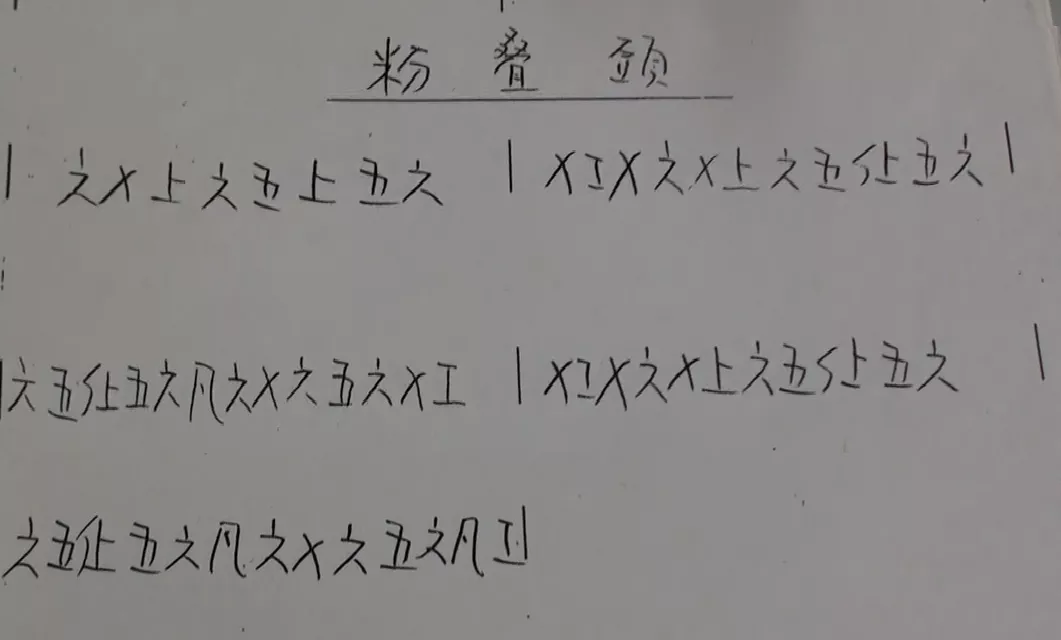 粉 叠 頭
| 六 X 上 六 五 上 五 六 | X 工 X 六 X 上 六 五 仩 五 六 |
| 六 五 仩 五 六 凡 六 X 六 五 六 X 工 | X 工 X 六 X 上 六 五 仩 五 六 |
六 五 仩 五 六 凡 六 X 六 五 六 凡 工 |